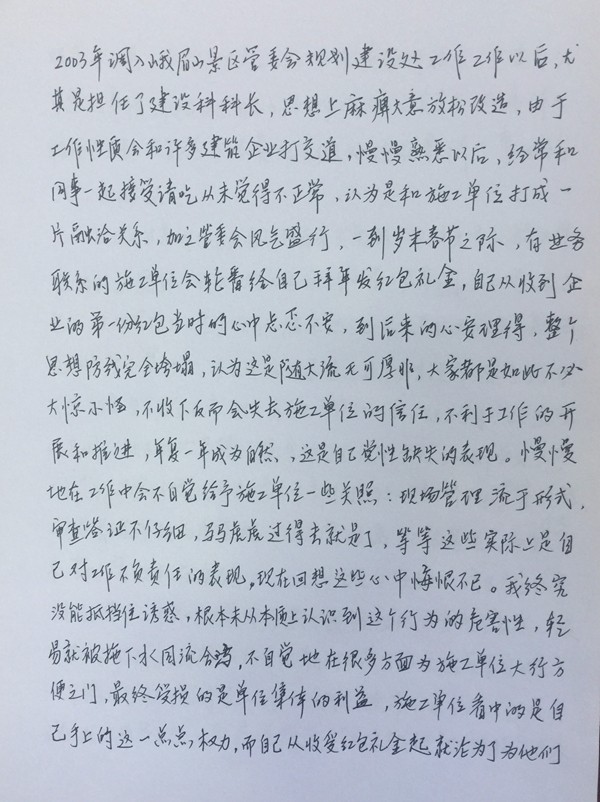 2003年调入峨眉山景区管委会规划建设处工作工作以后,尤
其是担任了建设科科长,思想上麻痹大意放松改造,由于
工作性质会和许多建筑企业打交道,慢慢熟悉以后,经常和
同事一起接受请吃从未觉得不正常,认为是和施工单位打成一
片融洽关系,加之管委会风气盛行,一到岁末春节之际,有业务
联系的施工单位会轮番给自己拜年发红包礼金,自己从收到企
业的第一份红包当时的心中忐忑不安,到后来的心安理得,整个
思想防线完全垮塌,认为这是随大流无可厚非,大家都是如此不必
大惊小怪,不收下反而会失去施工单位的信任,不利于工作的开
展和推进,年复一年成为自然、,这是自己党性缺失的表现。慢慢
地在工作中会不自觉给予施工单位一些关照:现场管理流于形式,
审查签证不仔细,马马虎虎过得去就是了,等等这些实际上是自
己对工作不负责任的表现,现在回想这些心中悔恨不已。我终究
没能抵挡住诱惑,根本未从本质上认识到这个行为的危害性,轻
易就被拖下水同流合污,不自觉地在很多方面为施工单位大行方
便之门,最终受损的是单位集体的利益,施工单位看中的是自
己手上的这一点点权力,而自己从收受红包礼金起就沦为了为他们